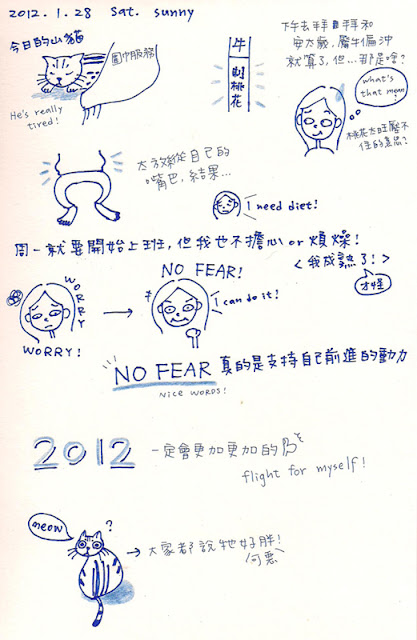 2012.1.28 Sat. sunny
今日的山貓
圍巾服務
He's really
tired!
牛
剋
桃
花
下午去拜拜和
安太歲, 屬牛偏沖
就算了, 但…那是啥?
what's
that mean?
桃花太旺壓不
住的意思?
太放縱自己的
嘴巴, 結果…
I need diet!
周一就要開始上班, 但我也不擔心 or 煩燥!
<我成熟了!>
才怪
WORRY
WORRY!
NO FEAR!
I can do it!
NO FEAR 真的是支持自己前進的動力
NICE WORDS!
2012 一定會更加更加的
flight for myself!
meow
?
→ 大家都說牠好胖!
可惡